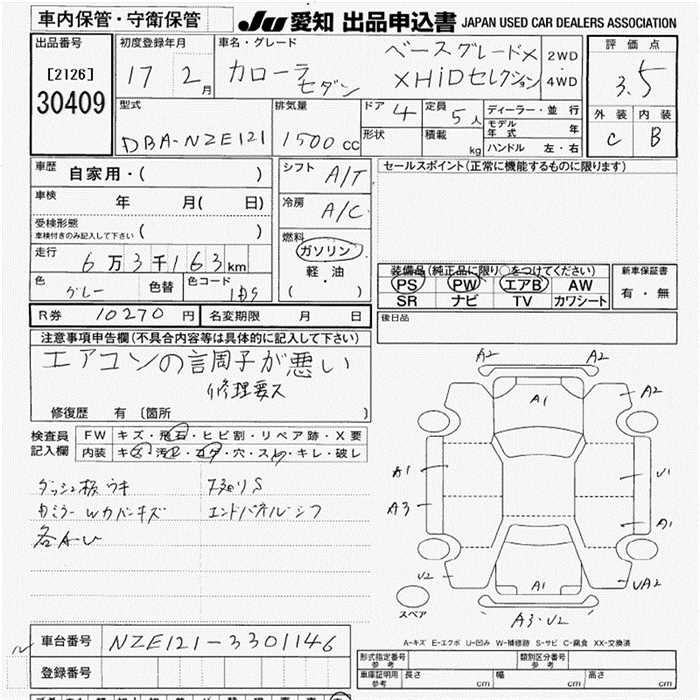 車内保管・守衛保管
JU 愛知 出品申込書 JAPAN USED CAR DEALERS ASSOCIATION
出品番号
[2126]
30409
初度登録年月
17 2月
車名・グレード
カローラ セダン
ベースグレードX
XHiDセレクション
2WD
4WD
評価点
3.5
外装 内装
C B
型式
DBA-NZE121
排気量
1500cc
ドア 4
形状
定員 5人
積載 kg
ディーラー・並行
モデル年式 年
ハンドル 左・右
車歴
自家用・( )
車検 年 月( 日)
受検形態
車検付きのみ記入して下さい ( )
走行
6万3千163km
色 グレー 色替 色コード
シフト A/T
冷房 A/C
燃料
ガソリン
軽・油
( )
セールスポイント(正常に機能するものに限ります)
装備品(純正品に限り○をつけてください)
PS PW エアB AW
SR ナビ TV カワシート
新車保証書
有・無
R券 10270円 名変期限 月 日
後日品
注意事項申告欄(不具合内容等は具体的に記入して下さい)
エアコンの調子が悪い
修理要ス
修復歴 有 〔箇所 〕
検査員記入欄
FW キズ・飛石・ヒビ割・リペア跡・X要
内装 キズ・汚レ・コゲ・穴・スレ・キレ・破レ
ダッシュ板ウキ
カミラーWカバーキズ エンドパネルシワ
各AU
A2 A2
A1 A2
A1 U1
A3 A1
U2 A1 UA2
スペア
A3・U2
A-キズ E-エクボ U-凹み W-補修跡 S-サビ C-腐食 XX-交換済
車台番号 NZE121-3301146
登録番号
形式指定番号 参考
類別区分番号 参考
車庫証明用 参考 長さ cm 幅 cm 高さ cm